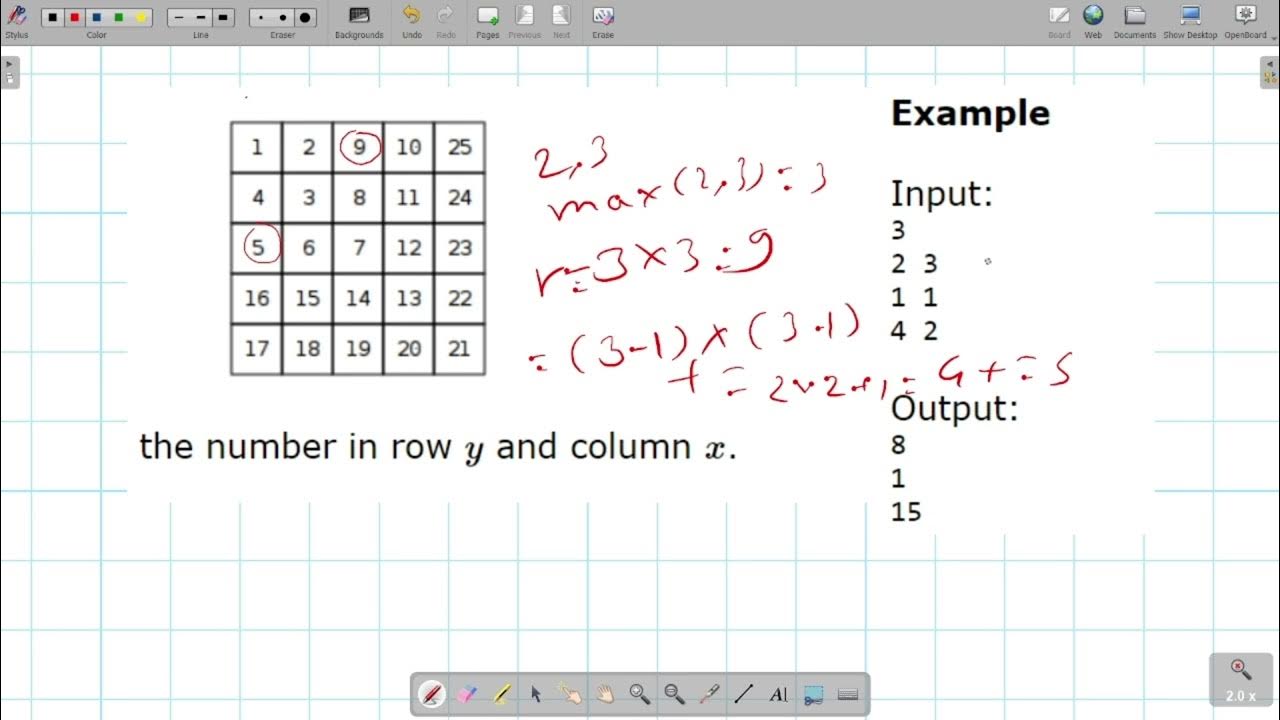 Stylus Color Line Eraser Backgrounds Undo Redo Pages Previous Next Erase Board Web Documents Show Desktop OpenBoard
1 2 9 10 25
4 3 8 11 24
5 6 7 12 23
16 15 14 13 22
17 18 19 20 21
the number in row y and column x.
2,3
max(2,3)=3
r=3×3=9
=(3-1)×(3-1)
+=2×2+1=4+=5
Example
Input:
3
2 3
1 1
4 2
Output:
8
1
15
AI
2.0 x